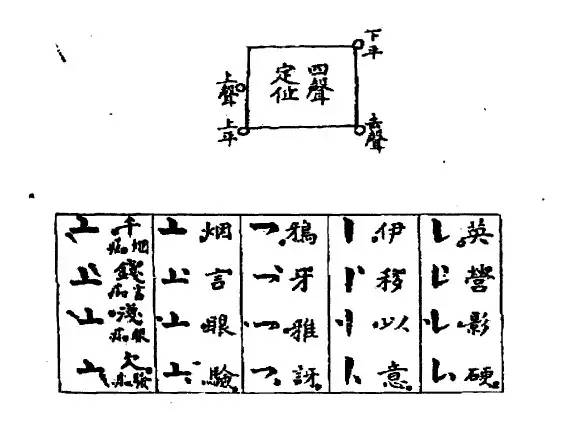 四聲
定位
下平
上聲
上平
去聲
英
營
影
硬
伊
移
以
意
鴉
牙
雅
訝
烟
言
眼
驗
千
烟
錢
言
淺
眼
欠
驗